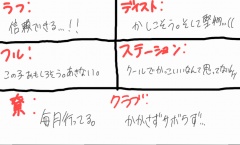 ラフ：
信頼できる...！！
テイスト：
かしこそう。そして堅物...((
フル：
この子おもしろそう。あきない。
ステーション：
クールでかっこいいなんて思ってないw
寮：
毎月行ってる。
クラブ：
かかさずサボらず...